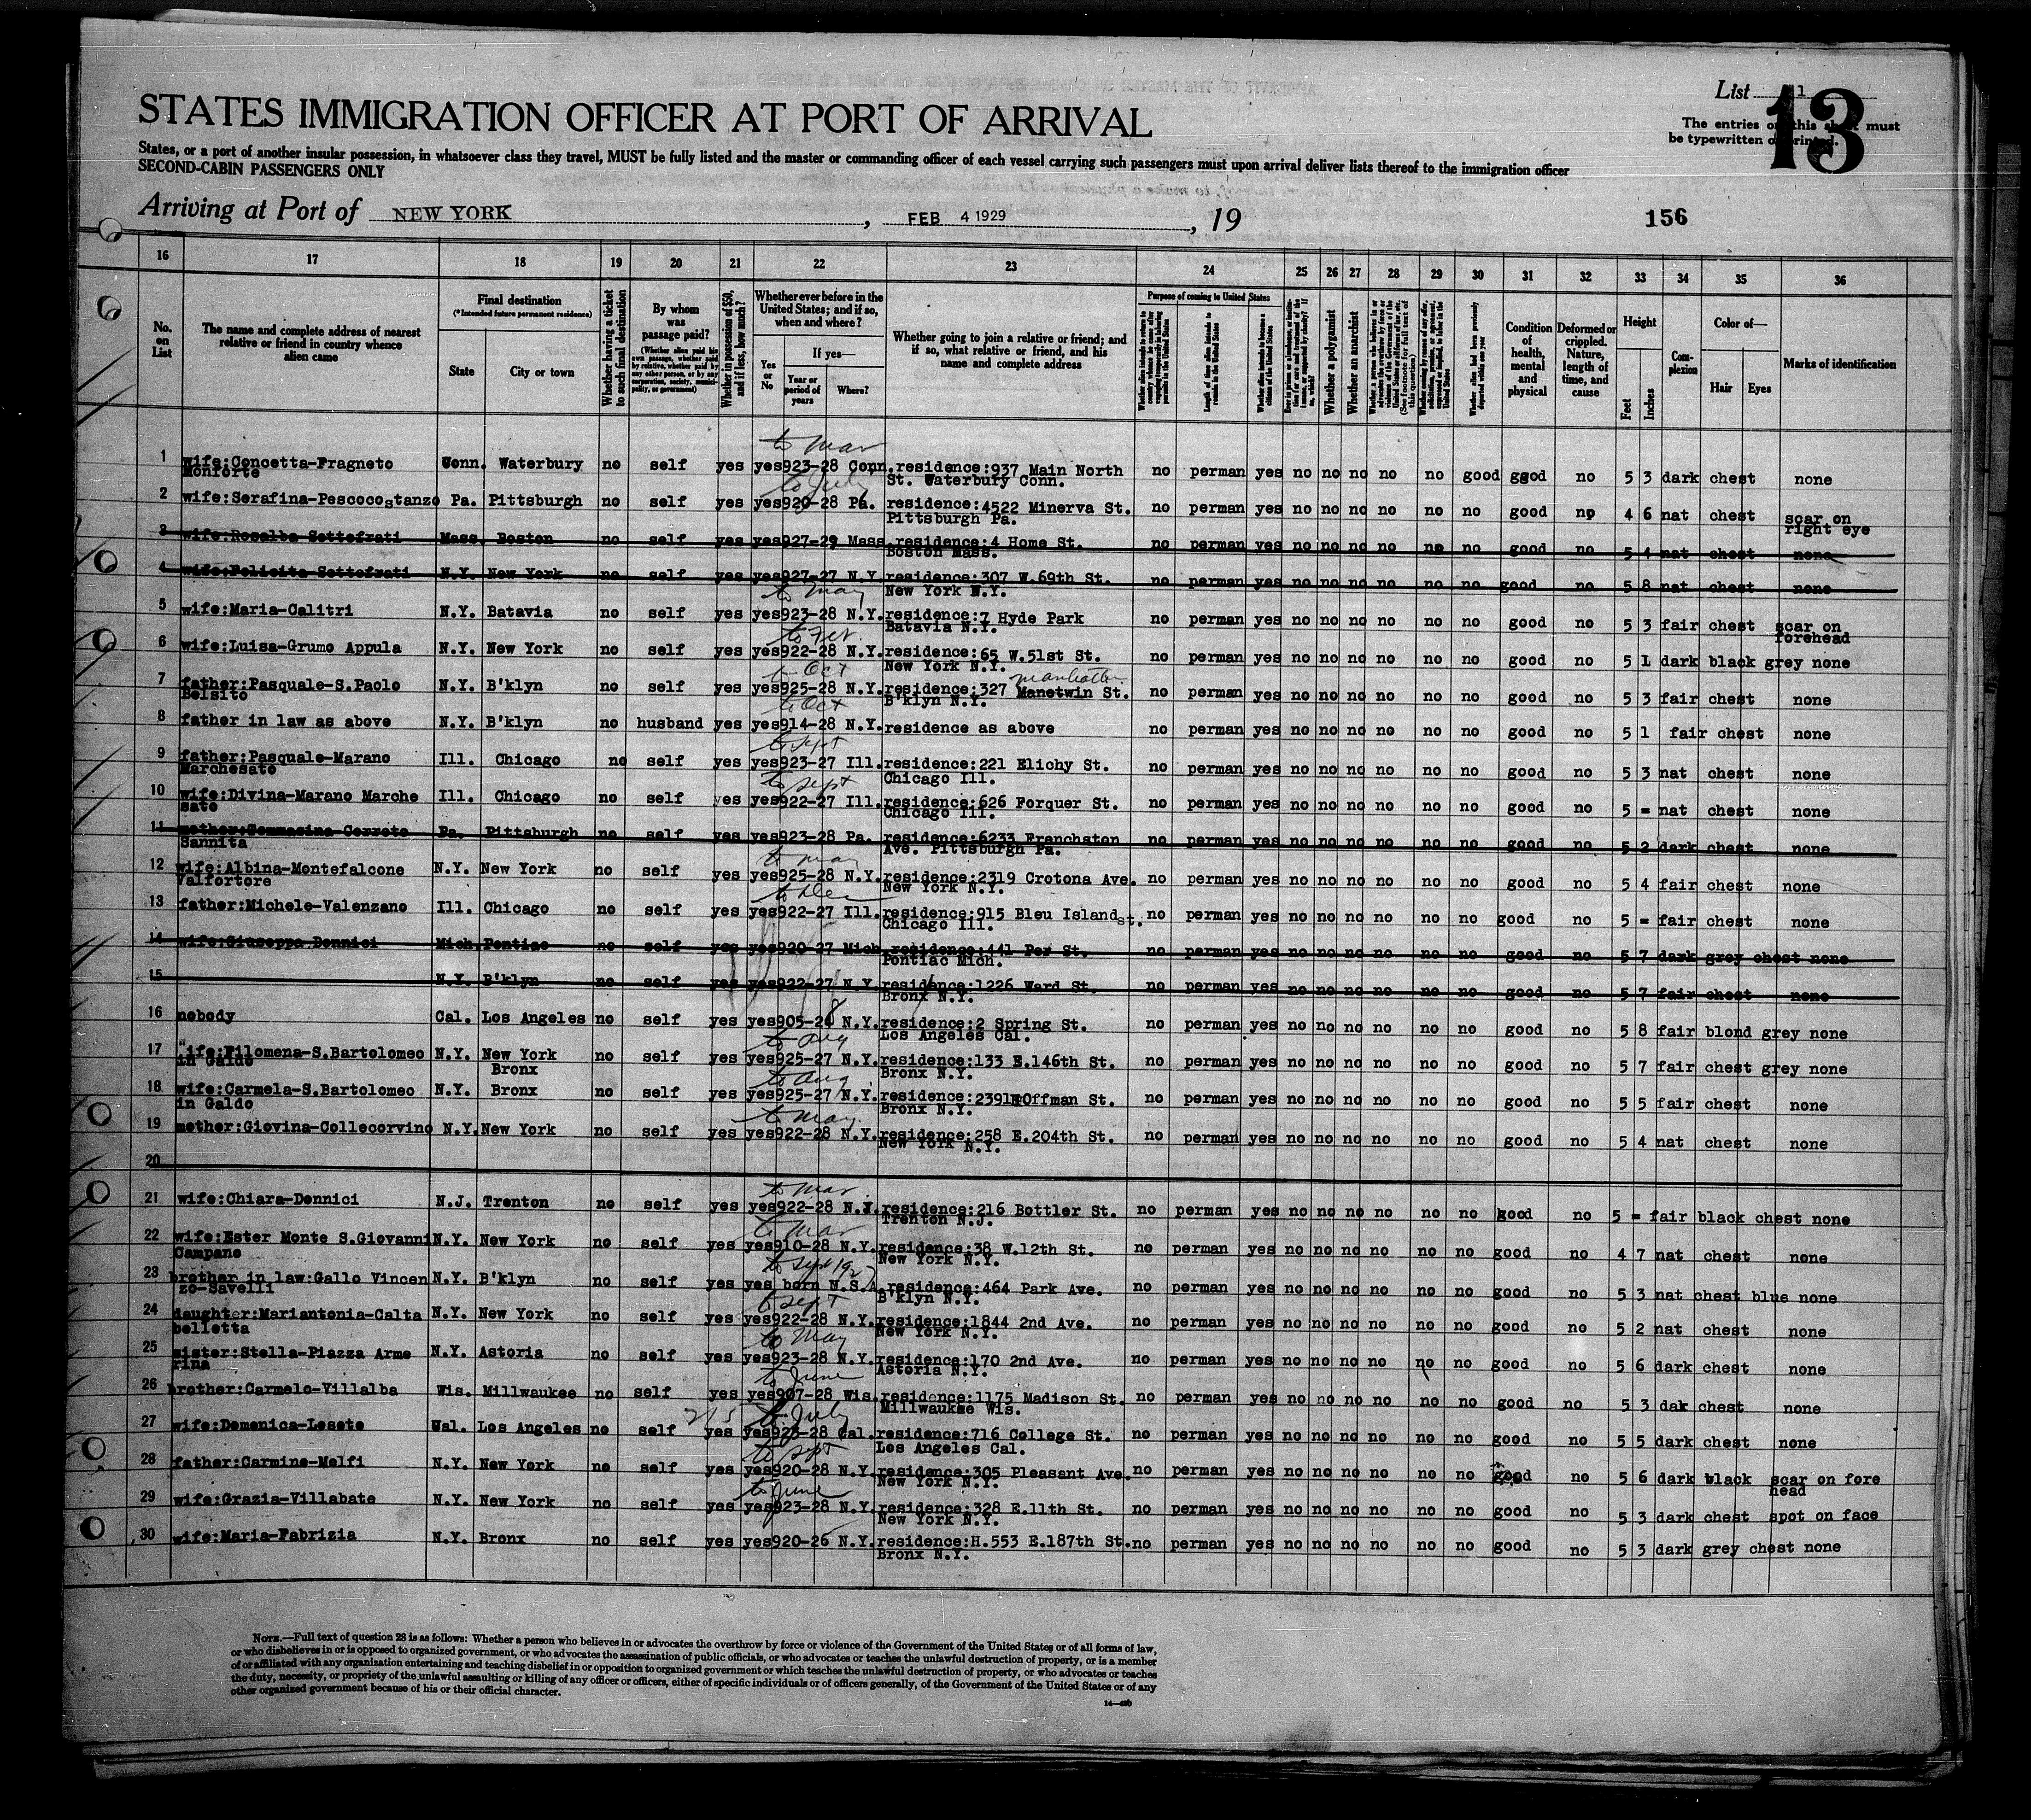 List 1
13
STATES IMMIGRATION OFFICER AT PORT OF ARRIVAL
The entries on this sheet must
be typewritten or printed.
States, or a port of another insular possession, in whatsoever class they travel, MUST be fully listed and the master or commanding officer of each vessel carrying such passengers must upon arrival deliver lists thereof to the immigration officer
SECOND-CABIN PASSENGERS ONLY
Arriving at Port of NEW YORK, FEB 4 1929, 19
156
16 17 18 19 20 21 22 23 24 25 26 27 28 29 30 31 32 33 34 35 36
No. on List
The name and complete address of nearest relative or friend in country whence alien came
Final destination
(*Intended future permanent residence)
State
City or town
Whether having a ticket to such final destination
By whom was passage paid?
(Whether alien paid his own passage, whether paid by relative, whether paid by any other person, or by any corporation, society, municipality, or government)
Whether in possession of $50, and if less, how much?
Whether ever before in the United States; and if so, when and where?
Yes or No
If yes—
Year or period of years
Where?
Whether going to join a relative or friend; and if so, what relative or friend, and his name and complete address
Purpose of coming to United States
Length of time alien intends to remain in the United States
Whether alien intends to become a citizen of the United States
Whether a polygamist
Whether an anarchist
Condition of health, mental and physical
Deformed or crippled. Nature, length of time, and cause
Height
Feet
Inches
Complexion
Color of—
Hair
Eyes
Marks of identification
to Mar
1 wife:Concetta-Fragneto Conn. Waterbury no self yes yes923-28 Conn.residence:937 Main North no perman yes no no no no no good good no 5 3 dark chest none
Monforte St. Waterbury Conn.
to July
2 wife:Serafina-Pescocostanzo Pa. Pittsburgh no self yes yes920-28 Pa. residence:4522 Minerva St. no perman yes no no no no no no good no 4 6 nat chest scar on
Pittsburgh Pa. right eye
3 wife:Rosalba Settefrati Mass. Boston no self yes yes927-29 Mass.residence:4 Home St. no perman yes no no no no no no good no 5 4 nat chest none
Boston Mass.
4 wife:Felicita Settefrati N.Y. New York no self yes yes927-27 N.Y.residence:307 W.69th St. no perman yes no no no no no no good no 5 8 nat chest none
New York N.Y.
to May
5 wife:Maria-Calitri N.Y. Batavia no self yes yes923-28 N.Y.residence:7 Hyde Park no perman yes no no no no no no good no 5 3 fair chest scar on
Batavia N.Y. forehead
to Fer.
6 wife:Luisa-Grumo Appula N.Y. New York no self yes yes922-28 N.Y.residence:65 W.51st St. no perman yes no no no no no no good no 5 1 dark black grey none
New York N.Y.
to Oct Manhattan
7 father:Pasquale-S.Paolo N.Y. B'klyn no self yes yes925-28 N.Y.residence:327 Manetwin St. no perman yes no no no no no no good no 5 3 fair chest none
Belsito B'klyn N.Y.
to Oct
8 father in law as above N.Y. B'klyn no husband yes yes914-28 N.Y.residence as above no perman yes no no no no no no good no 5 1 fair chest none
to Sept
9 father:Pasquale-Marano Ill. Chicago no self yes yes923-27 Ill.residence:221 Elichy St. no perman yes no no no no no no good no 5 3 nat chest none
Marchesato Chicago Ill.
to Sept
10 wife:Divina-Marano Marche Ill. Chicago no self yes yes922-27 Ill.residence:626 Forquer St. no perman yes no no no no no no good no 5 = nat chest none
sato Chicago Ill.
11 mother:Tommasina-Cerreto Pa. Pittsburgh no self yes yes923-28 Pa. residence:6233 Frenchston no perman yes no no no no no no good no 5 2 dark chest none
Sannita Ave. Pittsburgh Pa.
to May
12 wife:Albina-Montefalcone N.Y. New York no self yes yes925-28 N.Y.residence:2319 Crotona Ave. no perman yes no no no no no no good no 5 4 fair chest none
Valfortore New York N.Y.
to Dec
13 father:Michele-Valenzano Ill. Chicago no self yes yes922-27 Ill.residence:915 Bleu Island st. no perman yes no no no no no no good no 5 = fair chest none
Chicago Ill.
14 wife:Giuseppa Dennici Mich Pontiac no self yes yes920-27 Mich.residence:441 Per St. no perman yes no no no no no no good no 5 7 dark grey chest none
Pontiac Mich.
15 N.Y. B'klyn no self yes yes922-27 N.Y.residence:1226 Ward St. no perman yes no no no no no no good no 5 7 fair chest none
Bronx N.Y.
16 nobody Cal. Los Angeles no self yes yes905-28 N.Y.residence:2 Spring St. no perman yes no no no no no no good no 5 8 fair blond grey none
Los Angeles Cal.
to Aug
17 "ife:Filomena-S.Bartolomeo N.Y. New York no self yes yes925-27 N.Y.residence:133 E.146th St. no perman yes no no no no no no good no 5 7 fair chest grey none
in Galdo Bronx Bronx N.Y.
to Aug.
18 wife:Carmela-S.Bartolomeo N.Y. Bronx no self yes yes925-27 N.Y.residence:2391Hoffman St. no perman yes no no no no no no good no 5 5 fair chest none
in Galdo Bronx N.Y.
to May.
19 mother:Giovina-Collecorvino N.Y. New York no self yes yes922-28 N.Y.residence:258 E.204th St. no perman yes no no no no no no good no 5 4 nat chest none
New York N.Y.
20
to Mar
21 wife:Chiara-Dennici N.J. Trenton no self yes yes922-28 N.J.residence:216 Bottler St. no perman yes no no no no no no good no 5 = fair black chest none
Trenton N.J.
to Mar
22 wife:Ester Monte S.Giovanni N.Y. New York no self yes yes910-28 N.Y.residence:38 W.12th St. no perman yes no no no no no no good no 4 7 nat chest none
Campane New York N.Y.
to Sept 1927
23 brother in law:Gallo Vincen N.Y. B'klyn no self yes yes born N.S.A.residence:464 Park Ave. no perman yes no no no no no no good no 5 3 nat chest blue none
zo-Savelli B'klyn N.Y.
to Sept
24 daughter:Mariantonia-Calta N.Y. New York no self yes yes922-28 N.Y.residence:1844 2nd Ave. no perman yes no no no no no no good no 5 2 nat chest none
belletta New York N.Y.
to May
25 sister:Stella-Piazza Arme N.Y. Astoria no self yes yes923-28 N.Y.residence:170 2nd Ave. no perman yes no no no no no no good no 5 6 dark chest none
rina Astoria N.Y.
to June
26 brother:Carmelo-Villalba Wis. Millwaukee no self yes yes907-28 Wis.residence:1175 Madison St. no perman yes no no no no no no good no 5 3 dak chest none
Millwaukee Wis.
to July
27 wife:Domenica-Lesete Cal. Los Angeles no self yes yes923-28 Cal.residence:716 College St. no perman yes no no no no no no good no 5 5 dark chest none
Los Angeles Cal.
to Sept
28 father:Carmine-Melfi N.Y. New York no self yes yes920-28 N.Y.residence:305 Pleasant Ave. no perman yes no no no no no no good no 5 6 dark black scar on fore
New York N.Y. head
to June
29 wife:Grazia-Villabate N.Y. New York no self yes yes923-28 N.Y.residence:328 E.11th St. no perman yes no no no no no no good no 5 3 dark chest spot on face
New York N.Y.
30 wife:Maria-Fabrizia N.Y. Bronx no self yes yes920-26 N.Y.residence:H.553 E.187th St. no perman yes no no no no no no good no 5 3 dark grey chest none
Bronx N.Y.
NOTE.—Full text of question 28 is as follows: Whether a person who believes in or advocates the overthrow by force or violence of the Government of the United States or of all forms of law,
or who disbelieves in or is opposed to organized government, or who advocates the assassination of public officials, or who advocates or teaches the unlawful destruction of property, or is a member
of or affiliated with any organization entertaining and teaching disbelief in or opposition to organized government or which teaches the unlawful destruction of property, or who advocates or teaches
the duty, necessity, or propriety of the unlawful assaulting or killing of any officer or officers, either of specific individuals or of officers generally, of the Government of the United States or of any
other organized government because of his or their official character.